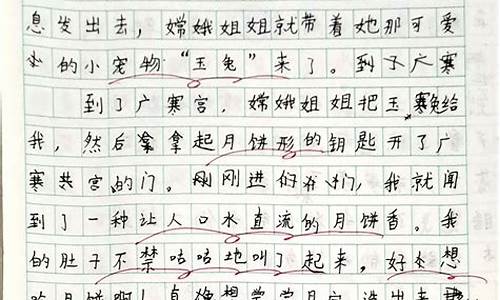 息发出去，嫦娥姐姐就带着她那可爱
的小宠物“玉兔”来了。到了广寒
到了广寒宫，嫦娥姐姐把玉兔给
我，然后拿起月饼形的钥匙开了广
寒宫的门。刚刚进们，我就闻
到了一种让人口水直流的月饼香。我
的肚子不禁咕咕地叫了起来，好想
吃月饼啊！真想